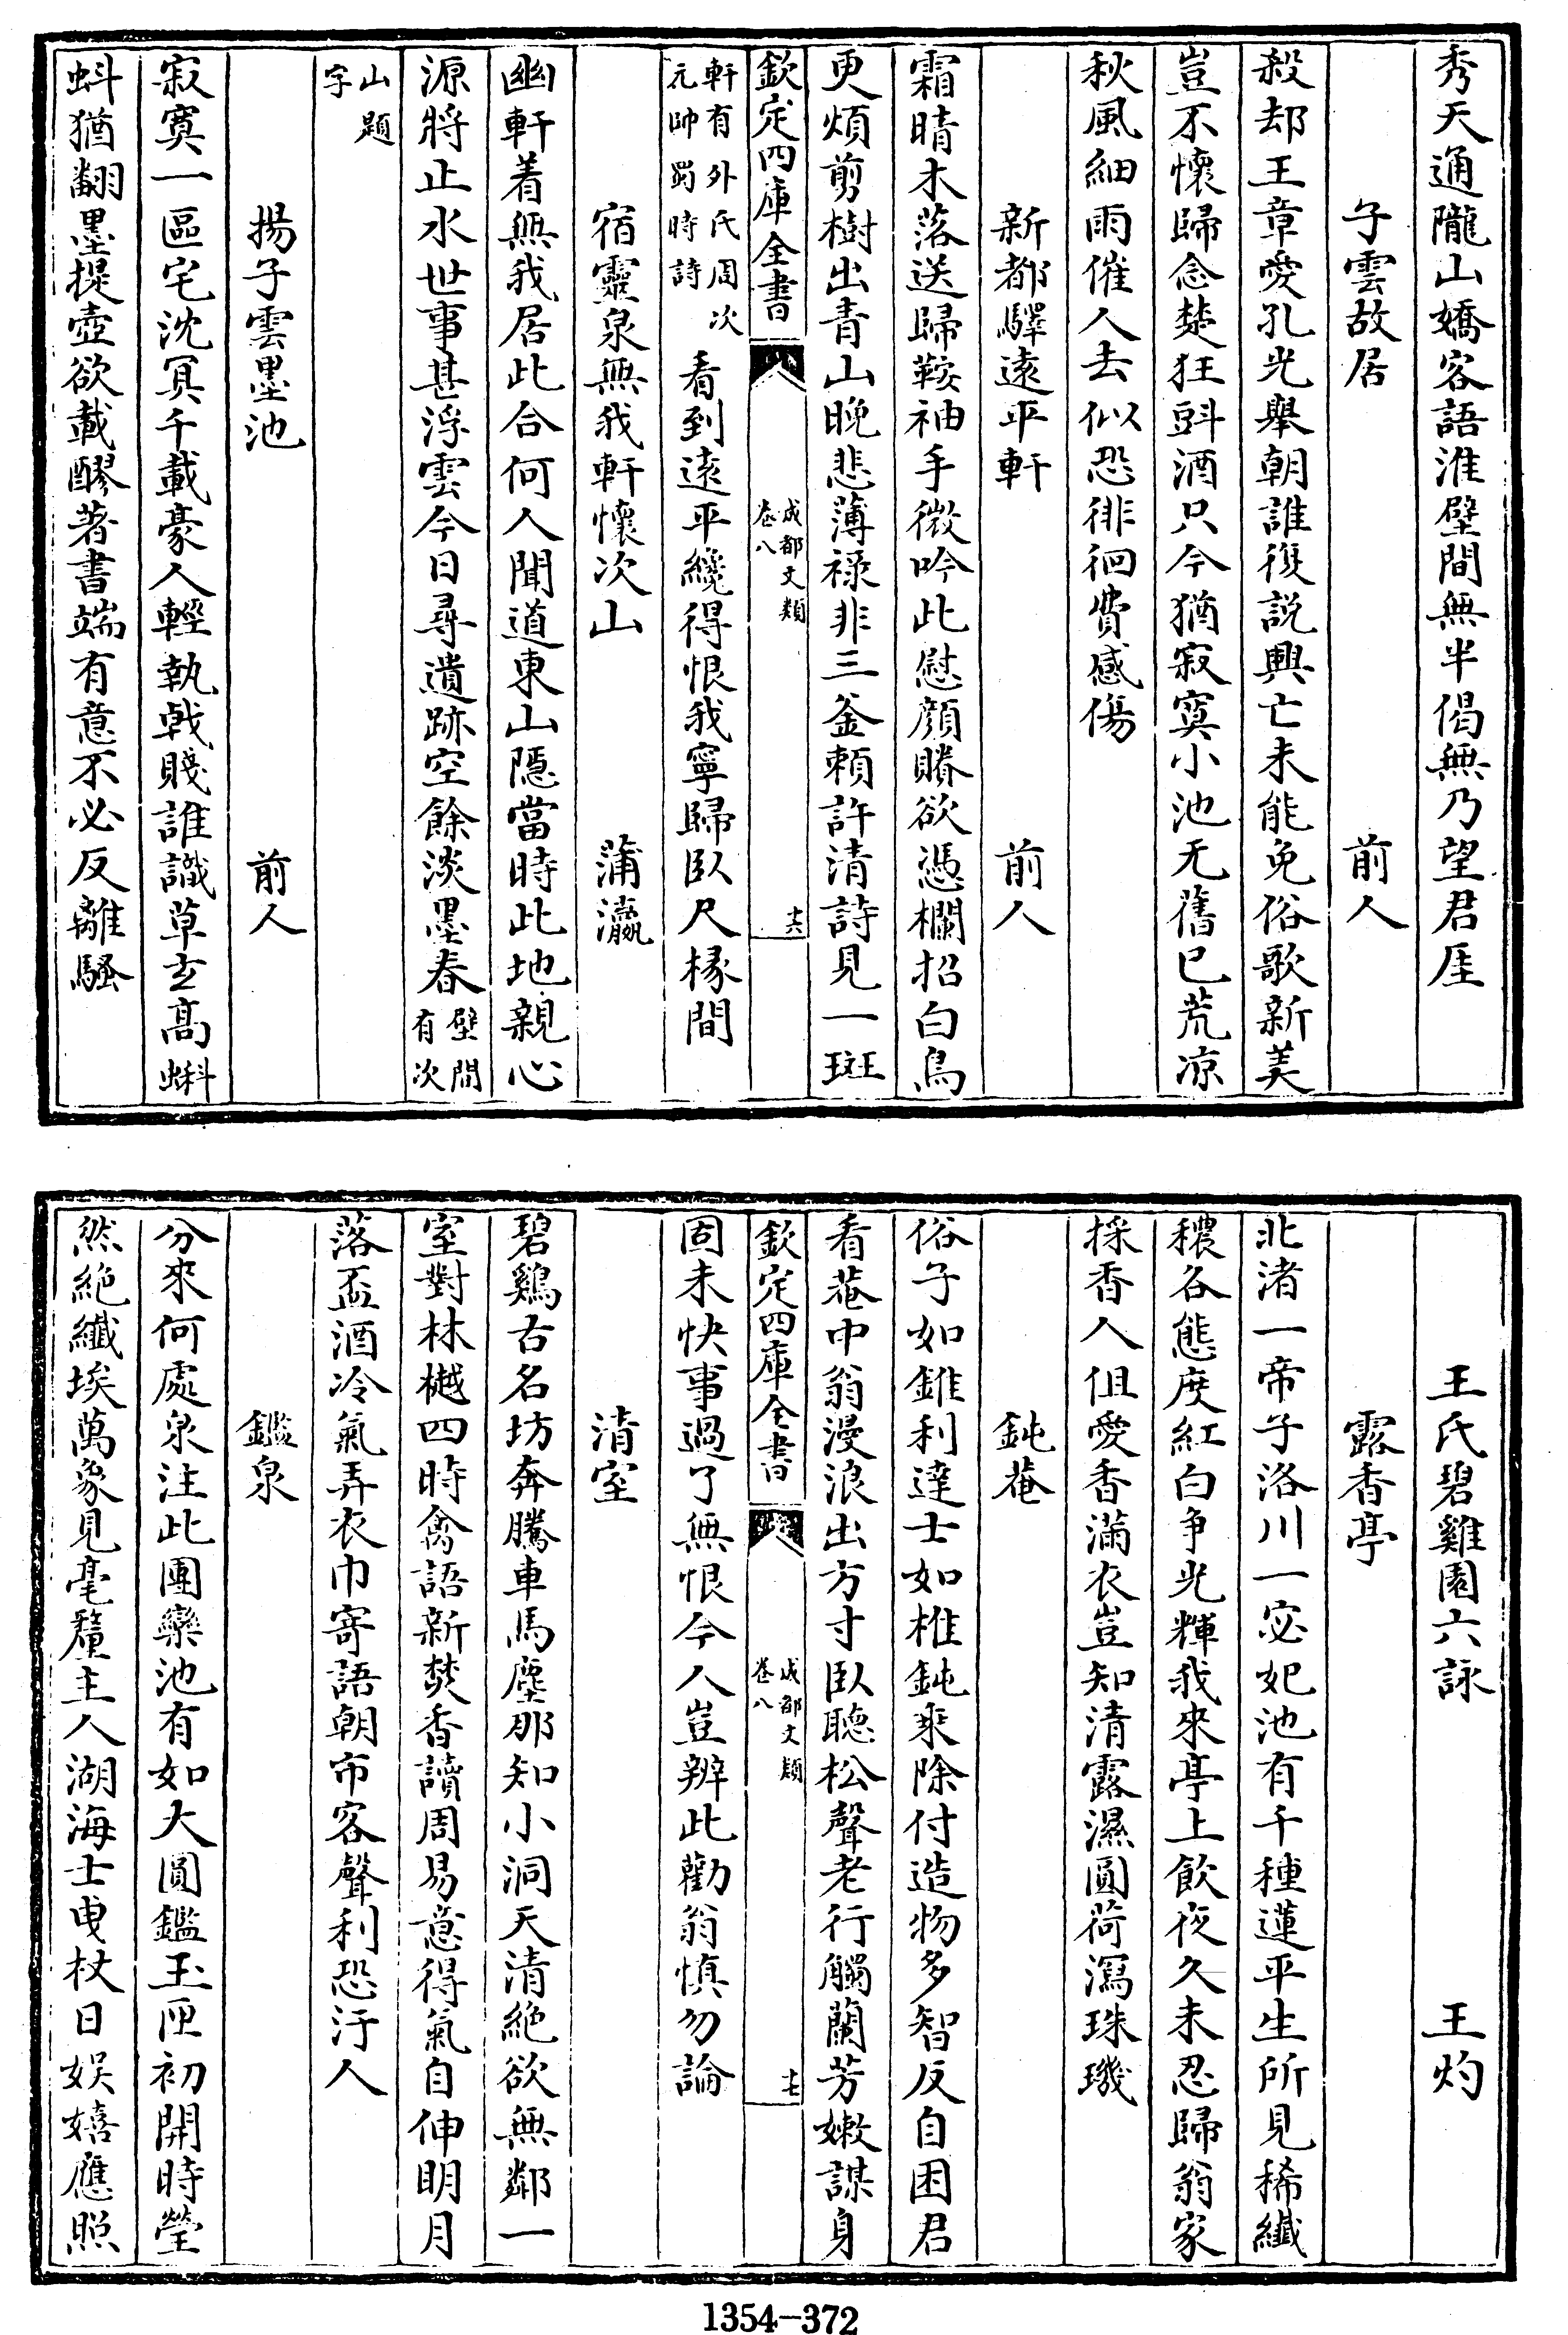 秀天通隴山嬌客語淮壁間無半偈無乃望君厓
子雲故居　前人
殺却王章愛孔光舉朝誰復説興亡未能免俗歌新美
豈不懷歸念楚狂㪷酒只今猶寂寞小池无舊已荒凉
秋風細雨催人去似恐徘徊費感傷
新都驛遠平軒　前人
霜晴木落送歸鞍袖手微吟此慰顔賸欲憑欄招白鳥
更煩剪樹出青山晚悲薄祿非三釜賴許清詩見一斑
欽定四庫全書　成都文類
卷八　十六
軒有外氏周次
元帥蜀時詩　看到遠平纔得恨我寧歸臥尺椽間
宿靈泉無我軒懷次山　蒲瀛
幽軒着無我居此合何人聞道東山隱當時此地親心
源將止水世事甚浮雲今日尋遺跡空餘淡墨春　壁間
有次
山題
字
揚子雲墨池　前人
寂寞一區宅沈冥千載豪人輕執戟賤誰識草玄高蝌
蚪猶翻墨提壺欲載醪著書端有意不必反離騷
王氏碧雞園六詠　王灼
露香亭
北渚一帝子洛川一宓妃池有千種蓮平生所見稀纖
穠各態度紅白争光輝我來亭上飲夜久未忍歸翁家
採香人但愛香滿衣豈知清露濕圓荷瀉珠璣
鈍菴
俗子如錐利達士如椎鈍乘除付造物多智反自困君
看菴中翁漫浪出方寸臥聴松聲老行觸蘭芳嫩謀身
欽定四庫全書　成都文類
卷八　十七
固未快事過了無恨今人豈辨此勸翁慎勿論
清室
碧鷄古名坊奔騰車馬塵那知小洞天清絶欲無鄰一
室對林樾四時禽語新焚香讀周易意得氣自伸明月
落盃酒冷氣弄衣巾寄語朝市客聲利恐汙人
鑑泉
分來何處泉注此團欒池有如大圓鑑玉匣初開時瑩
然絶纖埃萬象見毫釐主人湖海士曳杖日娱嬉應照
1354-372